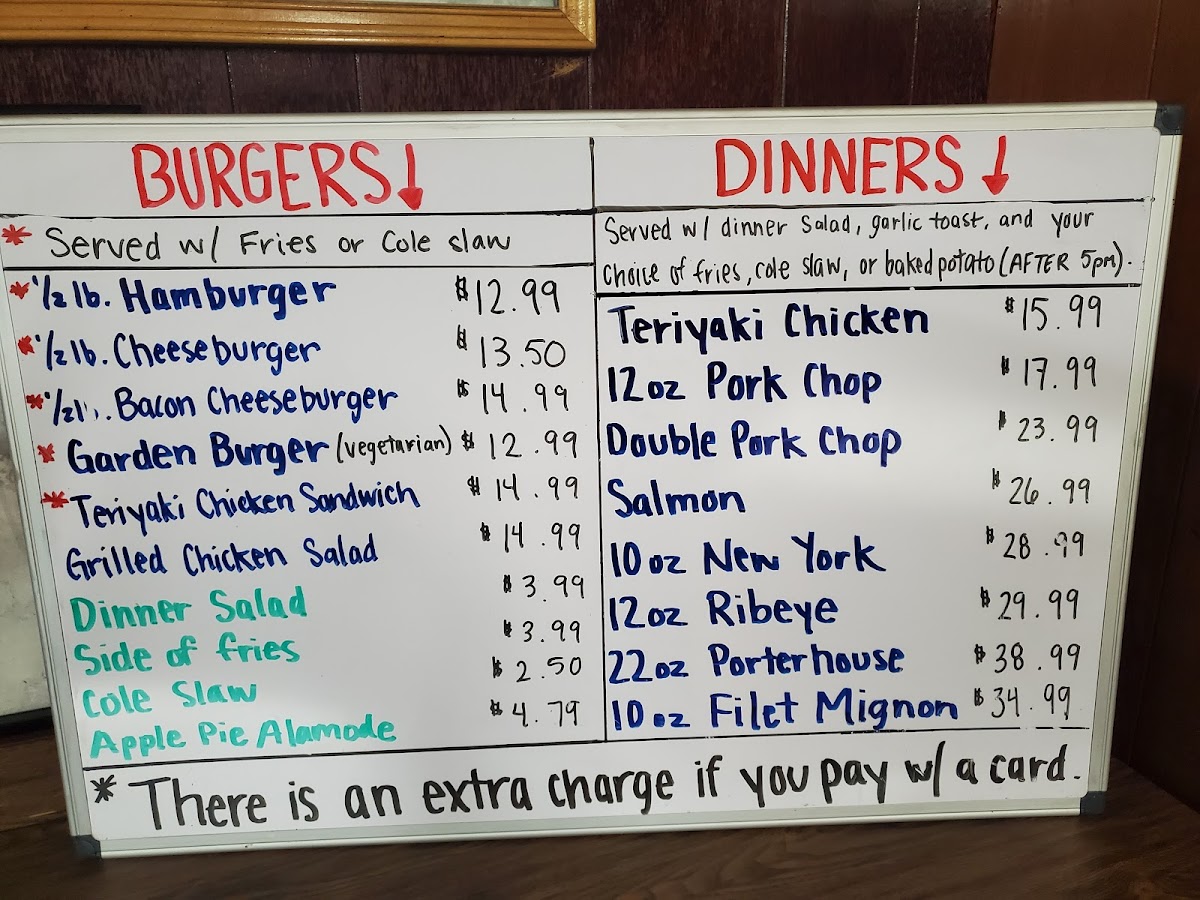 BURGERS↓
* Served w/ Fries or Cole slaw
* 1/2 lb. Hamburger $12.99
* 1/2 lb. Cheeseburger $13.50
* 1/2 l. Bacon Cheeseburger $14.99
* Garden Burger (vegetarian) $12.99
* Teriyaki Chicken Sandwich $14.99
Grilled Chicken Salad $14.99
Dinner Salad $3.99
Side of fries $3.99
Cole Slaw $2.50
Apple Pie Alamode $4.79
DINNERS↓
Served w/ dinner Salad, garlic toast, and your
choice of fries, cole slaw, or baked potato (AFTER 5pm).
Teriyaki Chicken $15.99
12oz Pork Chop $17.99
Double Pork Chop $23.99
Salmon $26.99
10oz New York $28.99
12oz Ribeye $29.99
22oz Porterhouse $38.99
10oz Filet Mignon $34.99
* There is an extra charge if you pay w/ a card.